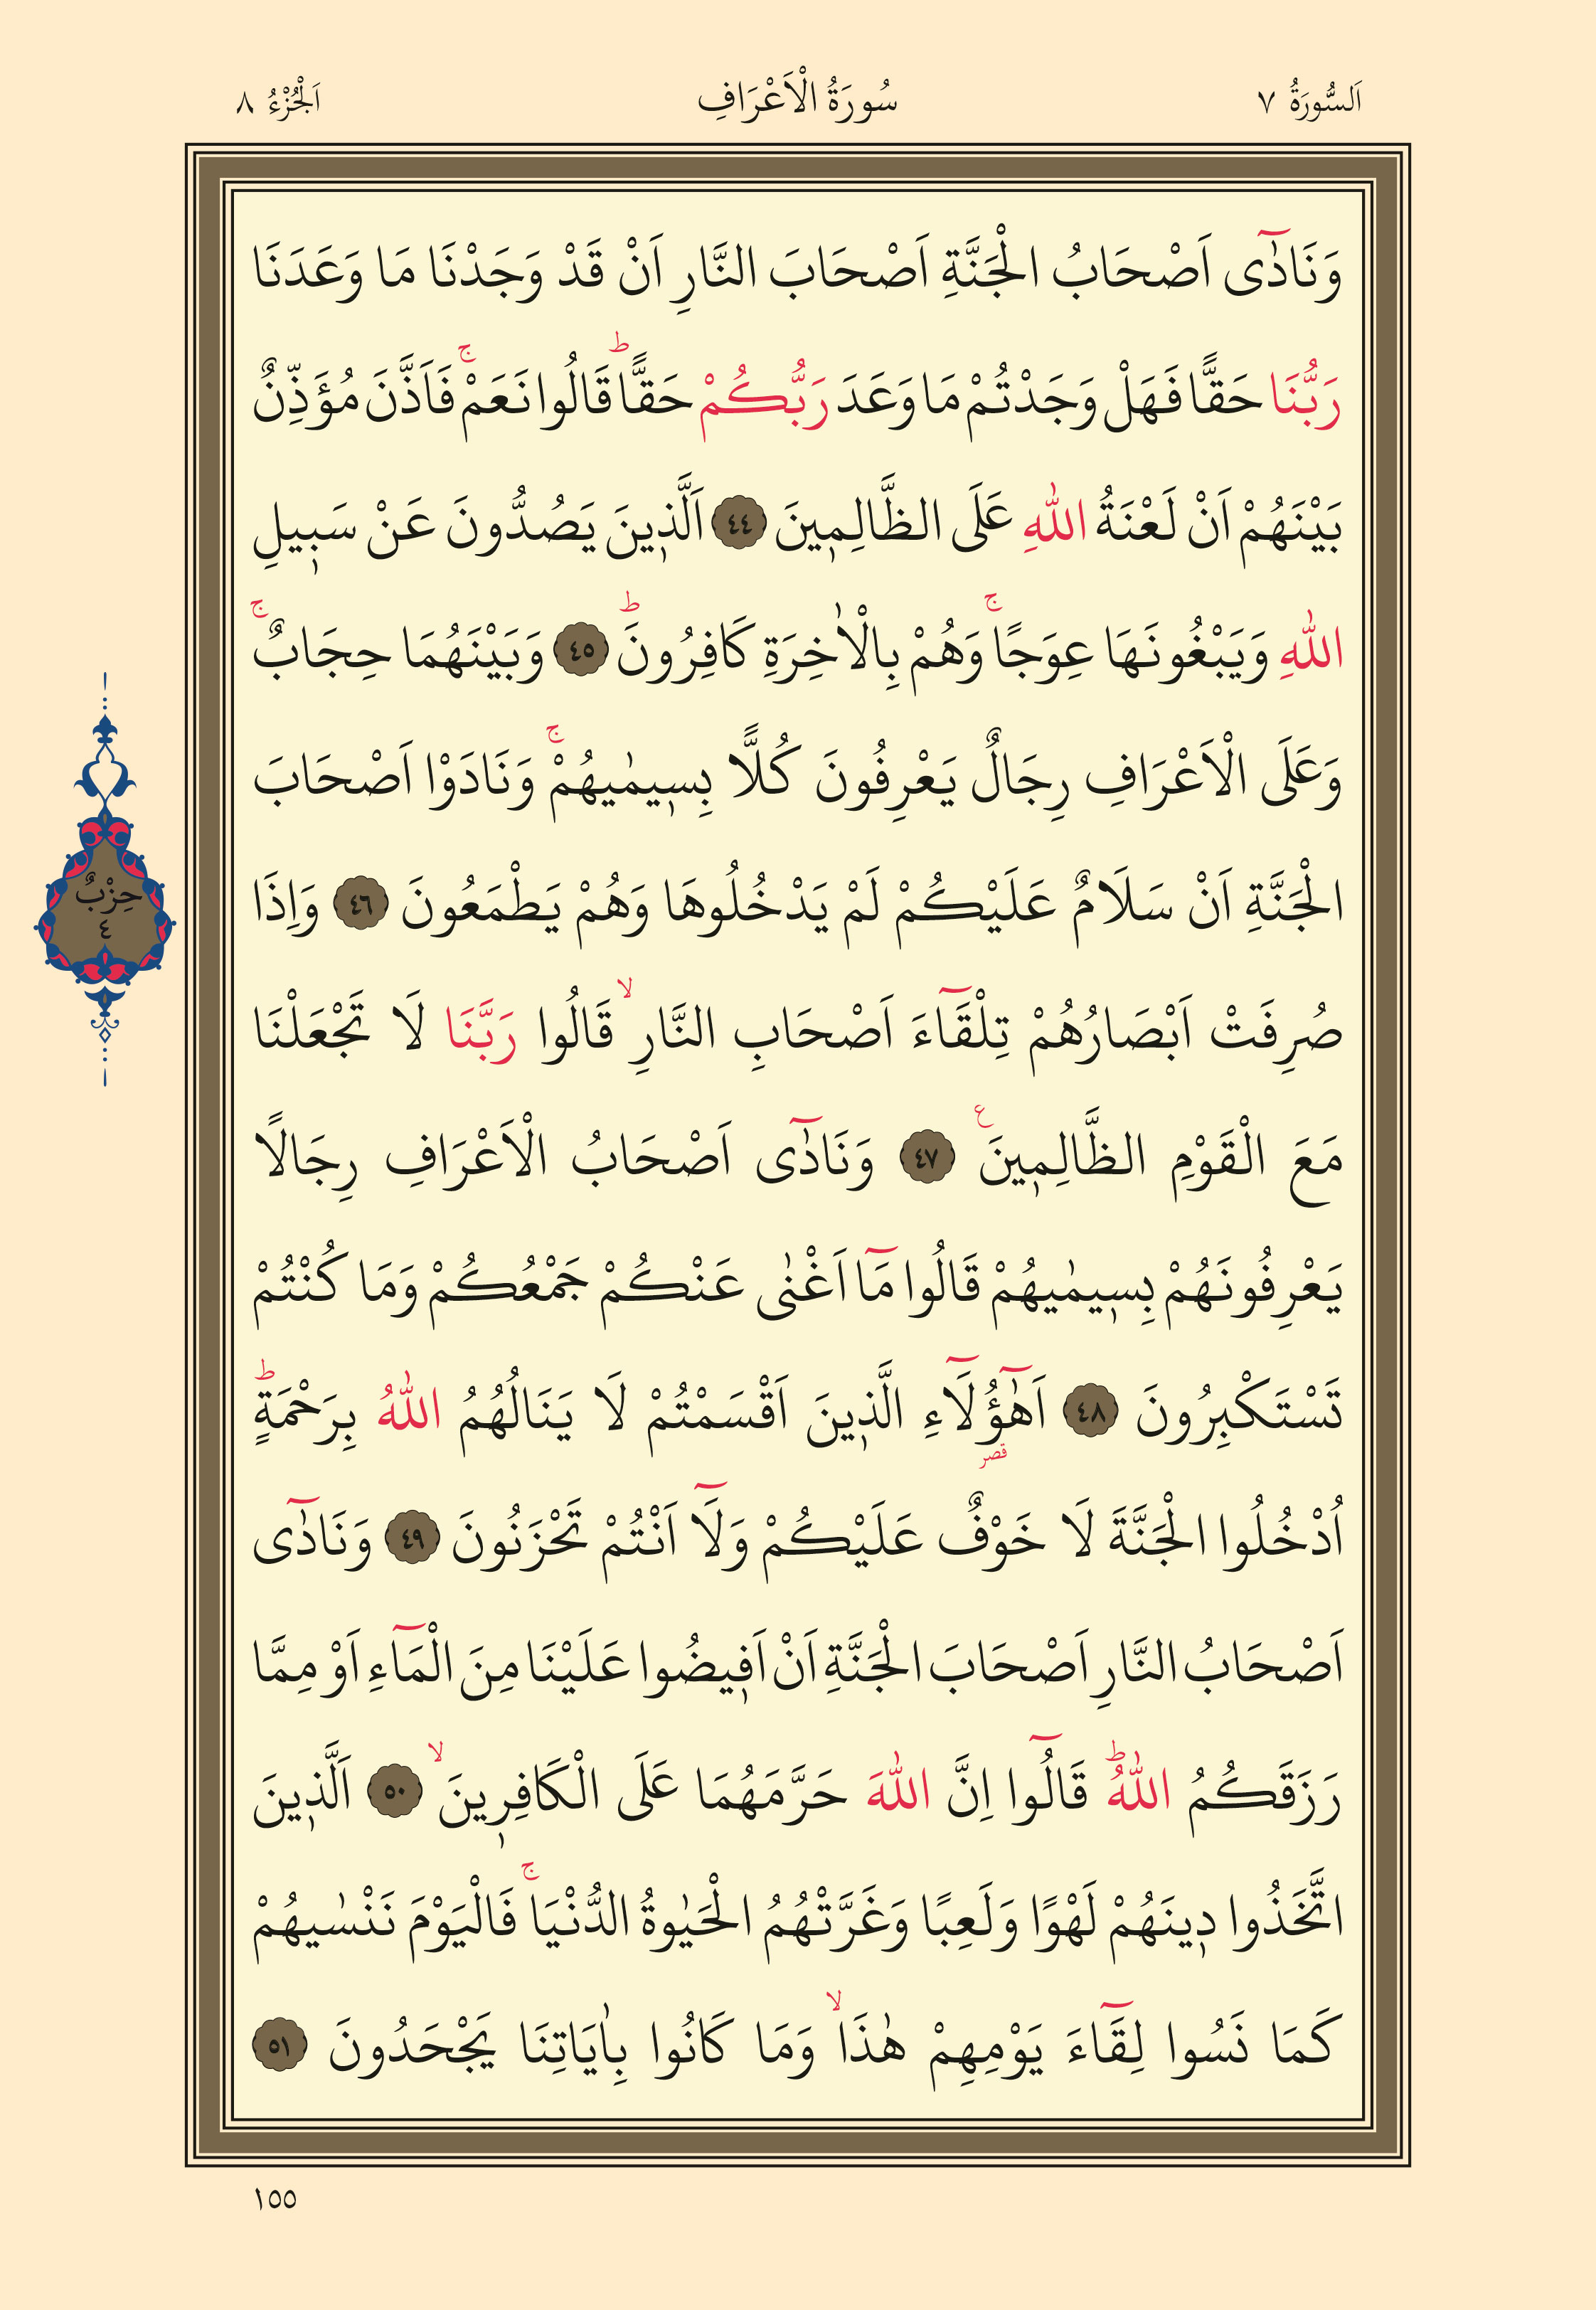 اَلسُّورَةُ ٧
سُورَةُ الْاَعْرَافِ
اَلْجُزْءُ ٨
وَنَادٰٓى اَصْحَابُ الْجَنَّةِ اَصْحَابَ النَّارِ اَنْ قَدْ وَجَدْنَا مَا وَعَدَنَا
رَبُّنَا حَقًّا فَهَلْ وَجَدْتُمْ مَا وَعَدَ رَبُّكُمْ حَقًّاؕ قَالُوا نَعَمْۚ فَاَذَّنَ مُؤَذِّنٌ
بَيْنَهُمْ اَنْ لَعْنَةُ اللّٰهِ عَلَى الظَّالِم۪ينَ ٤٤ اَلَّذ۪ينَ يَصُدُّونَ عَنْ سَب۪يلِ
اللّٰهِ وَيَبْغُونَهَا عِوَجًاۚ وَهُمْ بِالْاٰخِرَةِ كَافِرُونَؕ ٤٥ وَبَيْنَهُمَا حِجَابٌۚ
وَعَلَى الْاَعْرَافِ رِجَالٌ يَعْرِفُونَ كُلًّا بِس۪يمٰيهُمْۚ وَنَادَوْا اَصْحَابَ
الْجَنَّةِ اَنْ سَلَامٌ عَلَيْكُمْ لَمْ يَدْخُلُوهَا وَهُمْ يَطْمَعُونَ ٤٦ وَاِذَا
صُرِفَتْ اَبْصَارُهُمْ تِلْقَٓاءَ اَصْحَابِ النَّارِۙ قَالُوا رَبَّنَا لَا تَجْعَلْنَا
مَعَ الْقَوْمِ الظَّالِم۪ينَ۟ ٤٧ وَنَادٰٓى اَصْحَابُ الْاَعْرَافِ رِجَالًا
يَعْرِفُونَهُمْ بِس۪يمٰيهُمْ قَالُوا مَٓا اَغْنٰى عَنْكُمْ جَمْعُكُمْ وَمَا كُنْتُمْ
تَسْتَكْبِرُونَ ٤٨ اَهٰٓؤُ۬لَٓاءِ الَّذ۪ينَ اَقْسَمْتُمْ لَا يَنَالُهُمُ اللّٰهُ بِرَحْمَةٍؕ
قصر
اُدْخُلُوا الْجَنَّةَ لَا خَوْفٌ عَلَيْكُمْ وَلَٓا اَنْتُمْ تَحْزَنُونَ ٤٩ وَنَادٰٓى
اَصْحَابُ النَّارِ اَصْحَابَ الْجَنَّةِ اَنْ اَف۪يضُوا عَلَيْنَا مِنَ الْمَٓاءِ اَوْ مِمَّا
رَزَقَكُمُ اللّٰهُؕ قَالُٓوا اِنَّ اللّٰهَ حَرَّمَهُمَا عَلَى الْكَافِر۪ينَۙ ٥٠ اَلَّذ۪ينَ
اتَّخَذُوا د۪ينَهُمْ لَهْوًا وَلَعِبًا وَغَرَّتْهُمُ الْحَيٰوةُ الدُّنْيَاۚ فَالْيَوْمَ نَنْسٰيهُمْ
كَمَا نَسُوا لِقَٓاءَ يَوْمِهِمْ هٰذَاۙ وَمَا كَانُوا بِاٰيَاتِنَا يَجْحَدُونَ ٥١
حِزْبٌ
٤
١٥٥